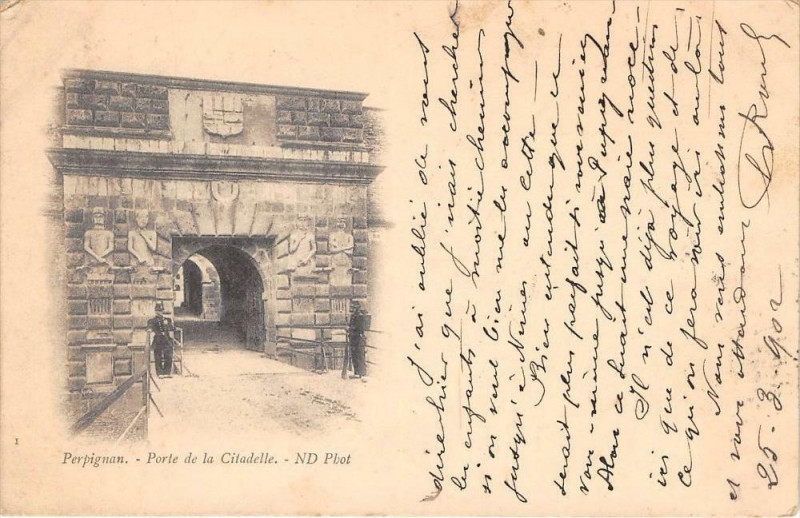 J'ai oublié de vous
dire hier que j'irais chercher
les enfants à moitié chemin
si on veut bien me les accompagner
jusqu'à Nîmes ou Cette —
Bien entendu que ce
serait plus parfait si vous veniez
vous-même jusqu'à Perpignan
Alors ce serait une vraie noce —
Il n'est déjà plus question
ici que de ce voyage et de
ce qu'on fera voir ici ou là
Nous vous embrassons tous
et vous attendons
25-3-902
1
Perpignan. - Porte de la Citadelle. - ND Phot